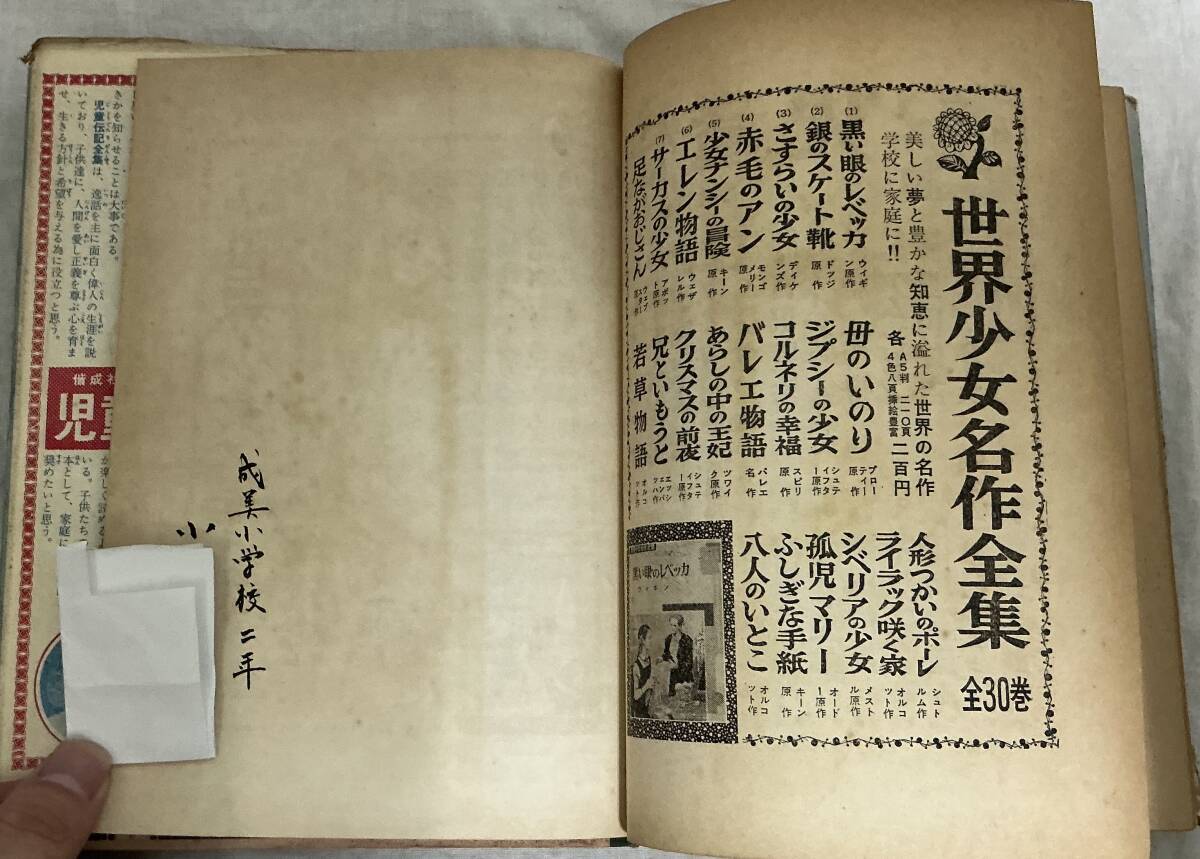 世界少女名作全集
全30巻
美しい夢と豊かな知恵に溢れた世界の名作
学校に家庭に!!
各
A5判 二一〇頁
4色八頁挿絵豊富
二百円
(1) 黒い眼のレベッカ ウィギン原作
(2) 銀のスケート靴 ドッジ原作
(3) さすらいの少女 ディケンズ作
(4) 赤毛のアン モンゴメリー原作
(5) 少女ナンシーの冒険 キーン原作
(6) エレン物語 ウェザレル作
(7) サーカスの少女 アボット原作
足ながおじさん ウェブスター
母のいのり ブローティー原作
ジプシーの少女 シュティフター原作
コルネリの幸福 スピリ原作
バレエ物語 バレエ名作
あらしの中の王妃 ツワイク原作
クリスマスの前夜 シュティフター原作
兄といもうと エッシェンバッハ作
若草物語 オルコット作
人形つかいのポーレ シュトルム作
ライラック咲く家 オルコット作
シベリアの少女 メストル原作
孤児マリー オードー原作
ふしぎな手紙 キーン原作
八人のいとこ オルコット作
黒い眼のレベッカ
成美小学校 二年
小
きかを知らせることは大事である。
児童伝記全集は、逸話を主に面白く偉人の生涯を説
いており、子供達に、人間を愛し正義を尊ぶ心を育ま
せ、生きる方針と希望を与える為に役立つと思う。
偕成社
児童
が楽しく読める
いる。子供たち
本として、家庭に
奨めたいと思う。